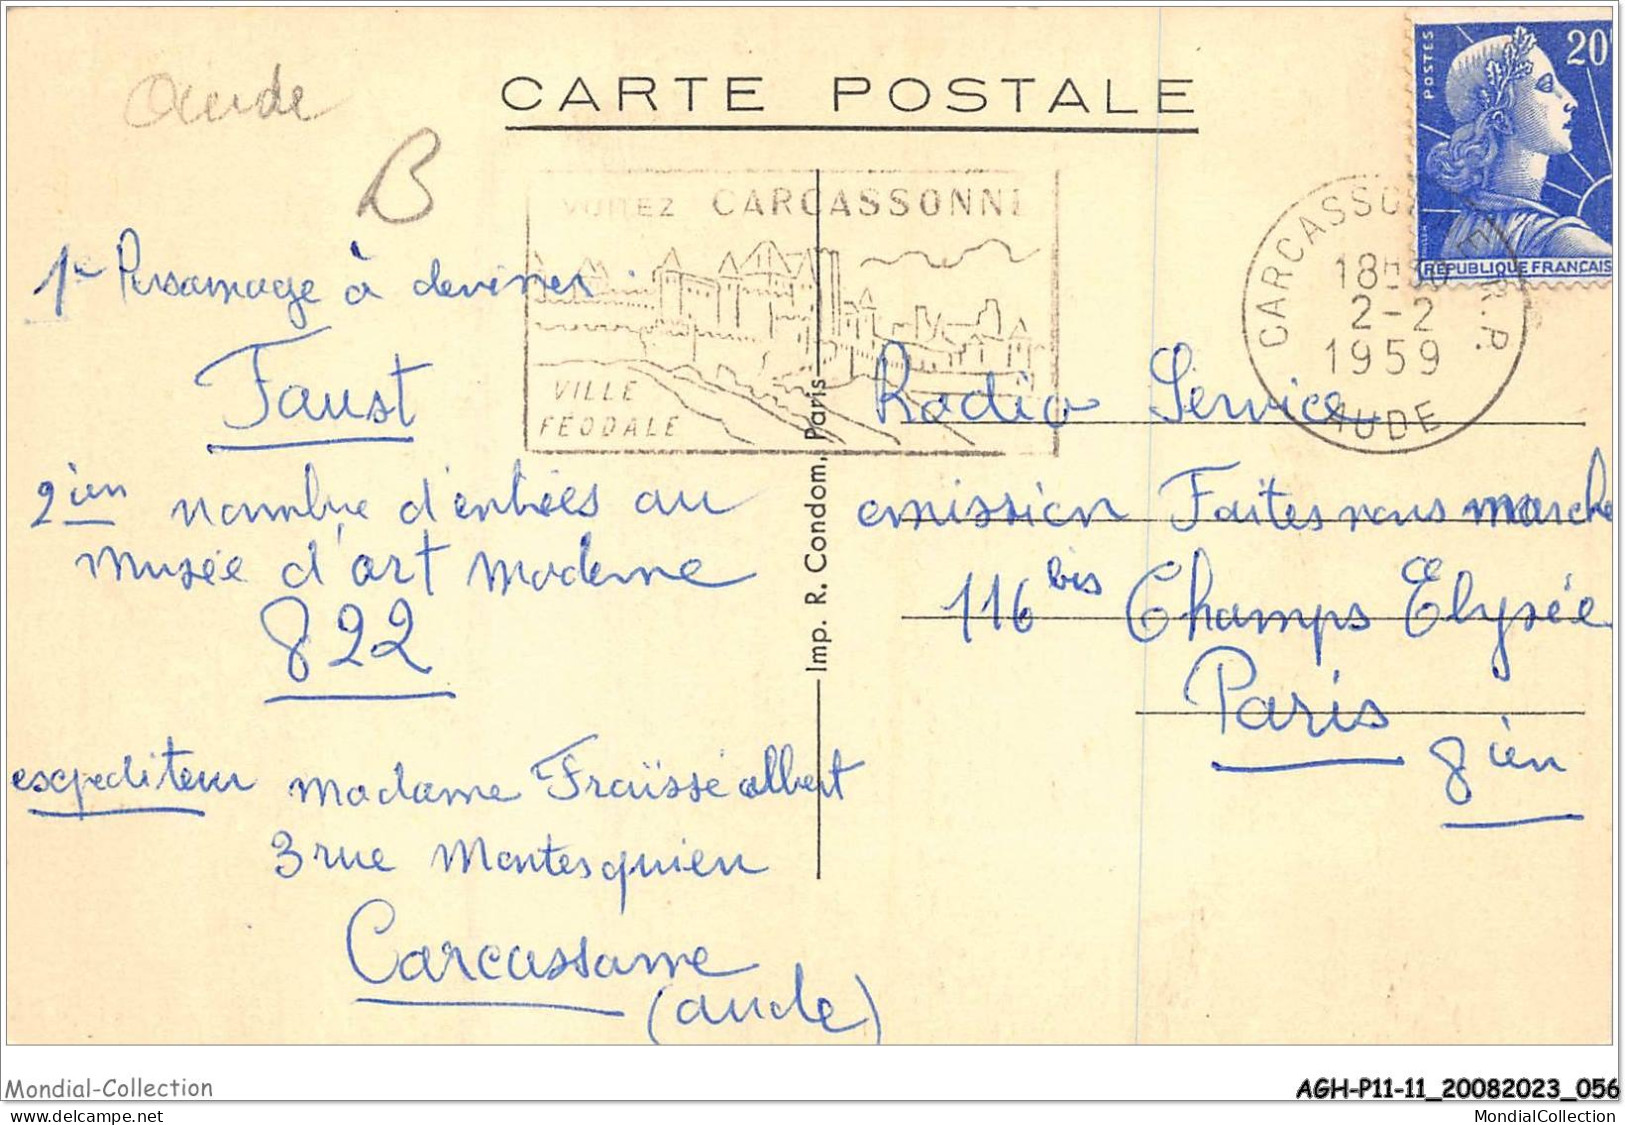 Aude
CARTE POSTALE
B
POSTES
20F
RÉPUBLIQUE FRANÇAISE
CARCASSONNE R.P.
18H
2-2
1959
AUDE
VISITEZ CARCASSONNE
VILLE
FÉODALE
1er Personnage à deviner
Faust
2ien nombre d'entrées au
musée d'art moderne
822
expediteur madame Fraïsse albert
3 rue Montesquieu
Carcassonne
(aude)
Imp. R. Condom, Paris
Radio Service
emission Faites nous marche
116 bis Champs Elysée
Paris
8ien
Mondial-Collection
AGH-P11-11_20082023_056
www.delcampe.net
MondialCollection